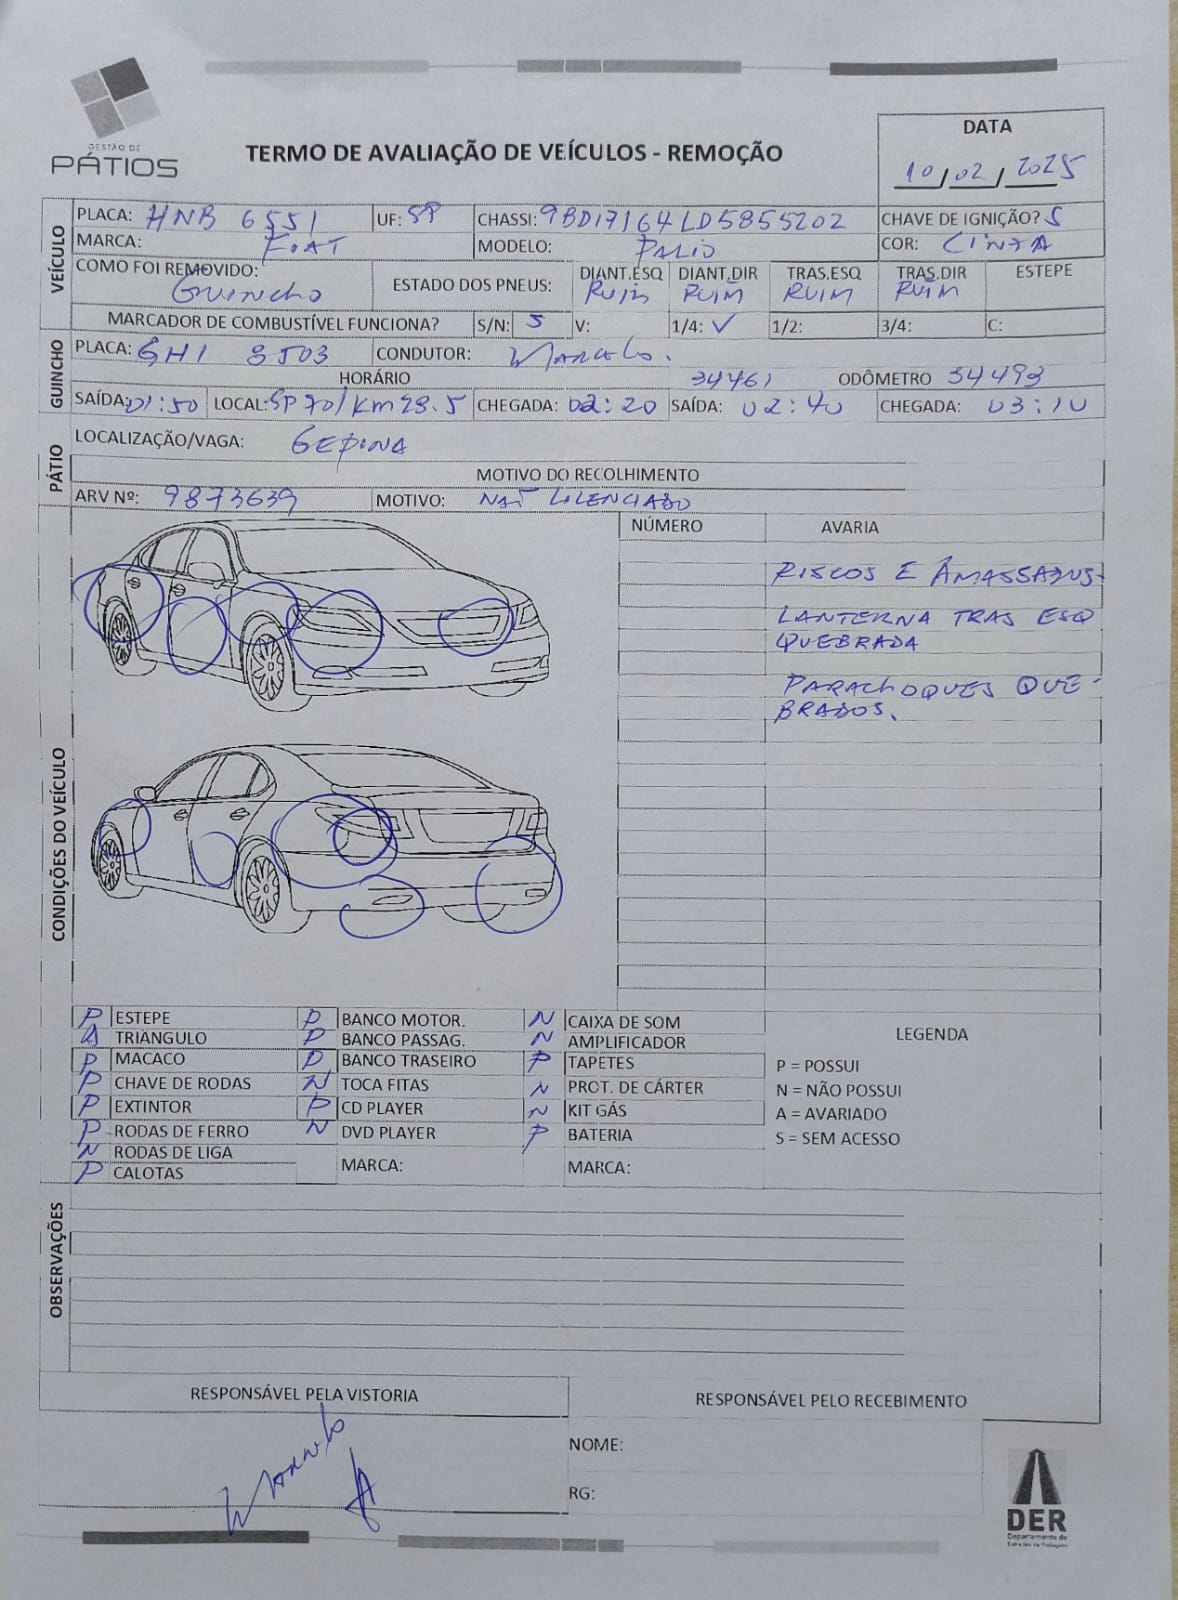 GESTÃO DE
PÁTIOS
TERMO DE AVALIAÇÃO DE VEÍCULOS - REMOÇÃO
DATA
10/02/2025
VEÍCULO
PLACA: HNB 6551 UF: SP CHASSI: 9BD17164LD5855202 CHAVE DE IGNIÇÃO? S
MARCA: FIAT MODELO: PALIO COR: CINZA
COMO FOI REMOVIDO: GUINCHO ESTADO DOS PNEUS: DIANT.ESQ DIANT.DIR TRAS.ESQ TRAS.DIR ESTEPE
RUIM RUIM RUIM RUIM
MARCADOR DE COMBUSTÍVEL FUNCIONA? S/N: S V: 1/4: ✓ 1/2: 3/4: C:
GUINCHO
PLACA: GHI 8503 CONDUTOR: MARCELO.
HORÁRIO 34461 ODÔMETRO 34493
SAÍDA: 01:50 LOCAL: SP 70/KM 28.5 CHEGADA: 02:20 SAÍDA: 02:40 CHEGADA: 03:10
PÁTIO
LOCALIZAÇÃO/VAGA:
MOTIVO DO RECOLHIMENTO
ARV Nº: 9873639 MOTIVO: NÃO LICENCIADO
CONDIÇÕES DO VEÍCULO
NÚMERO AVARIA
RISCOS E AMASSADOS
LANTERNA TRAS ESQ
QUEBRADA
PARACHOQUES QUE-
BRADOS.
P ESTEPE P BANCO MOTOR. N CAIXA DE SOM
TRIÂNGULO P BANCO PASSAG. N AMPLIFICADOR
P MACACO P BANCO TRASEIRO P TAPETES
P CHAVE DE RODAS N TOCA FITAS N PROT. DE CÁRTER
P EXTINTOR P CD PLAYER N KIT GÁS
P RODAS DE FERRO N DVD PLAYER P BATERIA
N RODAS DE LIGA MARCA: MARCA:
P CALOTAS
LEGENDA
P = POSSUI
N = NÃO POSSUI
A = AVARIADO
S = SEM ACESSO
OBSERVAÇÕES
RESPONSÁVEL PELA VISTORIA
Marcelo
RESPONSÁVEL PELO RECEBIMENTO
NOME:
RG:
DER
Departamento de
Estradas de Rodagem